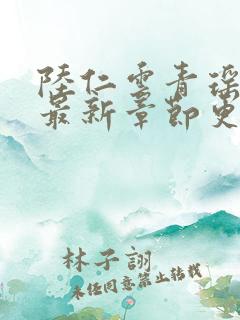 陸仁雲青瑤
最新章節更
林子謝
未經同意禁止轉載